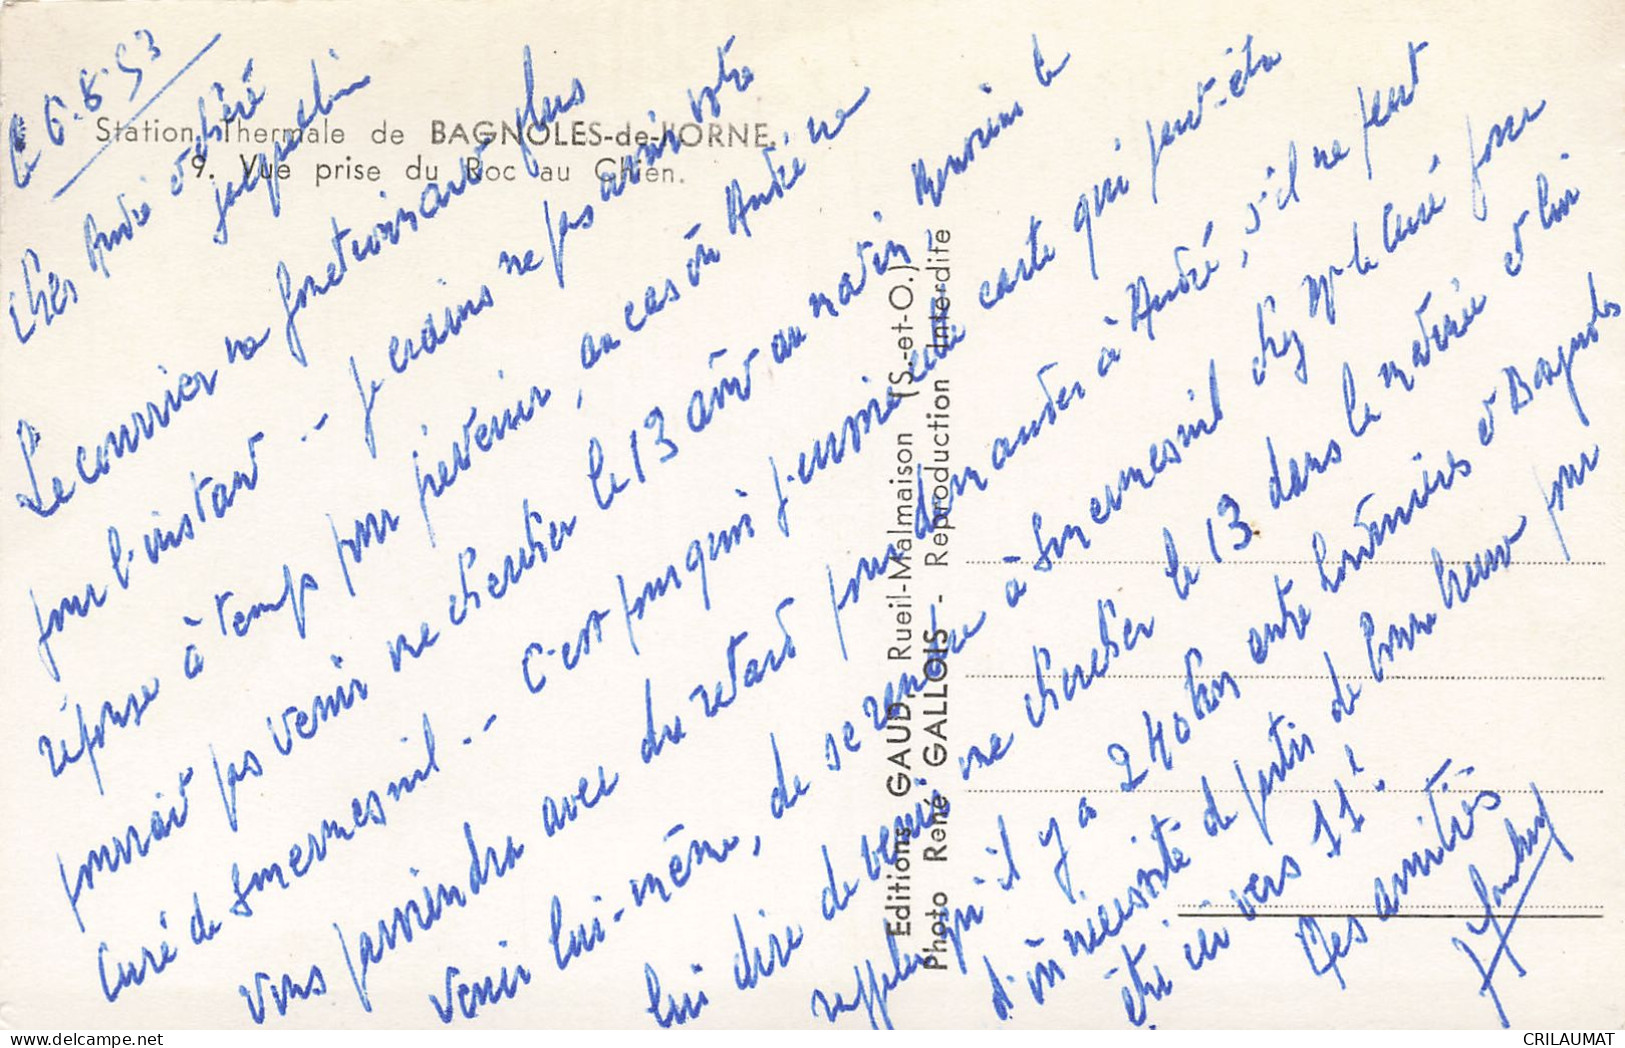 Station Thermale de BAGNOLES-de-l'ORNE.
9. Vue prise du Roc au Chien.
Editions GAUD, Rueil-Malmaison (S.-et-O.)
Photo René GALLOIS - Reproduction Interdite
Le 6.8.53
Chers André et
Jacquelin
Le courrier ne fonctionnant plus
pour l'instant -- je crains ne pas avoir votre
réponse à temps pour prévenir, au cas où André ne
pourrait pas venir me chercher le 13 août au matin
curé de -- C'est pourquoi j'envoie cette carte qui peut-être
vous parviendra avec du retard pour demander à André, s'il ne peut
venir lui-même, de se rendre à chez Mr le Curé pour
lui dire de venir me chercher le 13 dans la matinée et lui
rappeler qu'il y a 240 km entre et Bagnoles
d'où nécessité de partir de bonne heure pour
être ici vers 11h.
Mes amitiés
CRILAUMAT